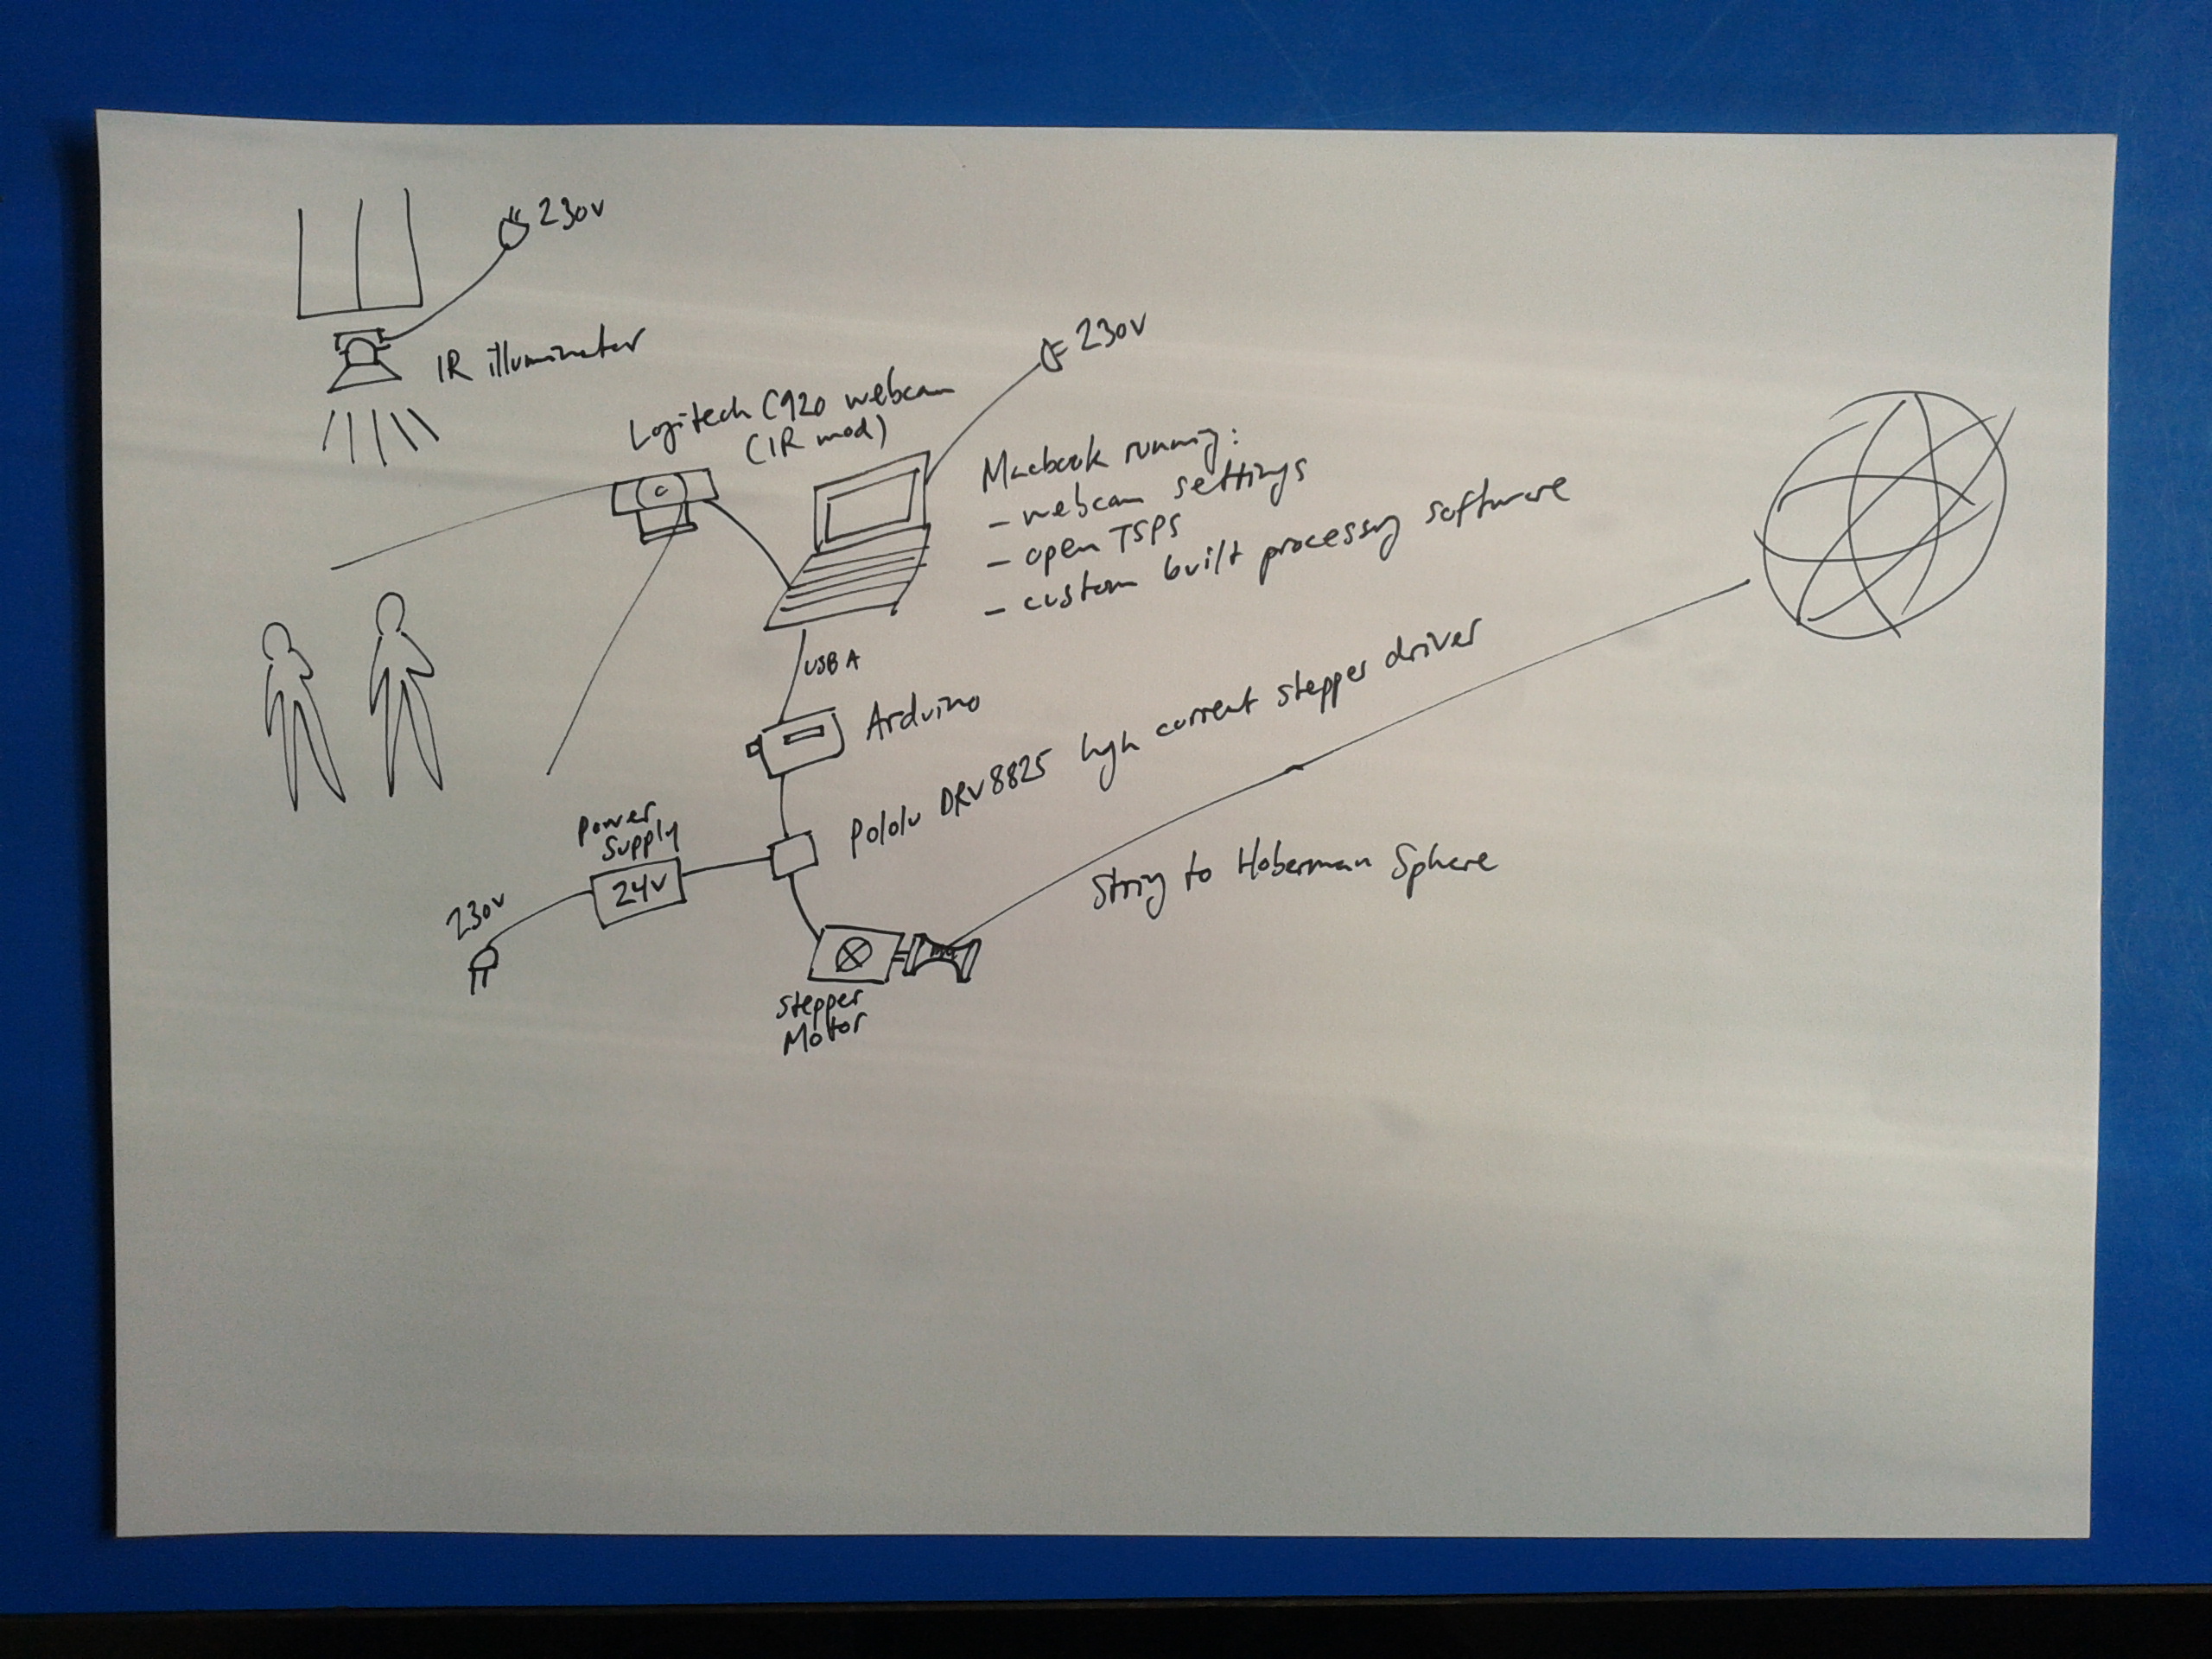 230V
IR illuminator
230V
Logitech C920 webcam
(IR mod)
Macbook running:
- webcam settings
- open TSPS
- custom built processing software
USB A
Arduino
Pololu DRV8825 high current stepper driver
Power
Supply
24V
230V
String to Hoberman Sphere
Stepper
Motor